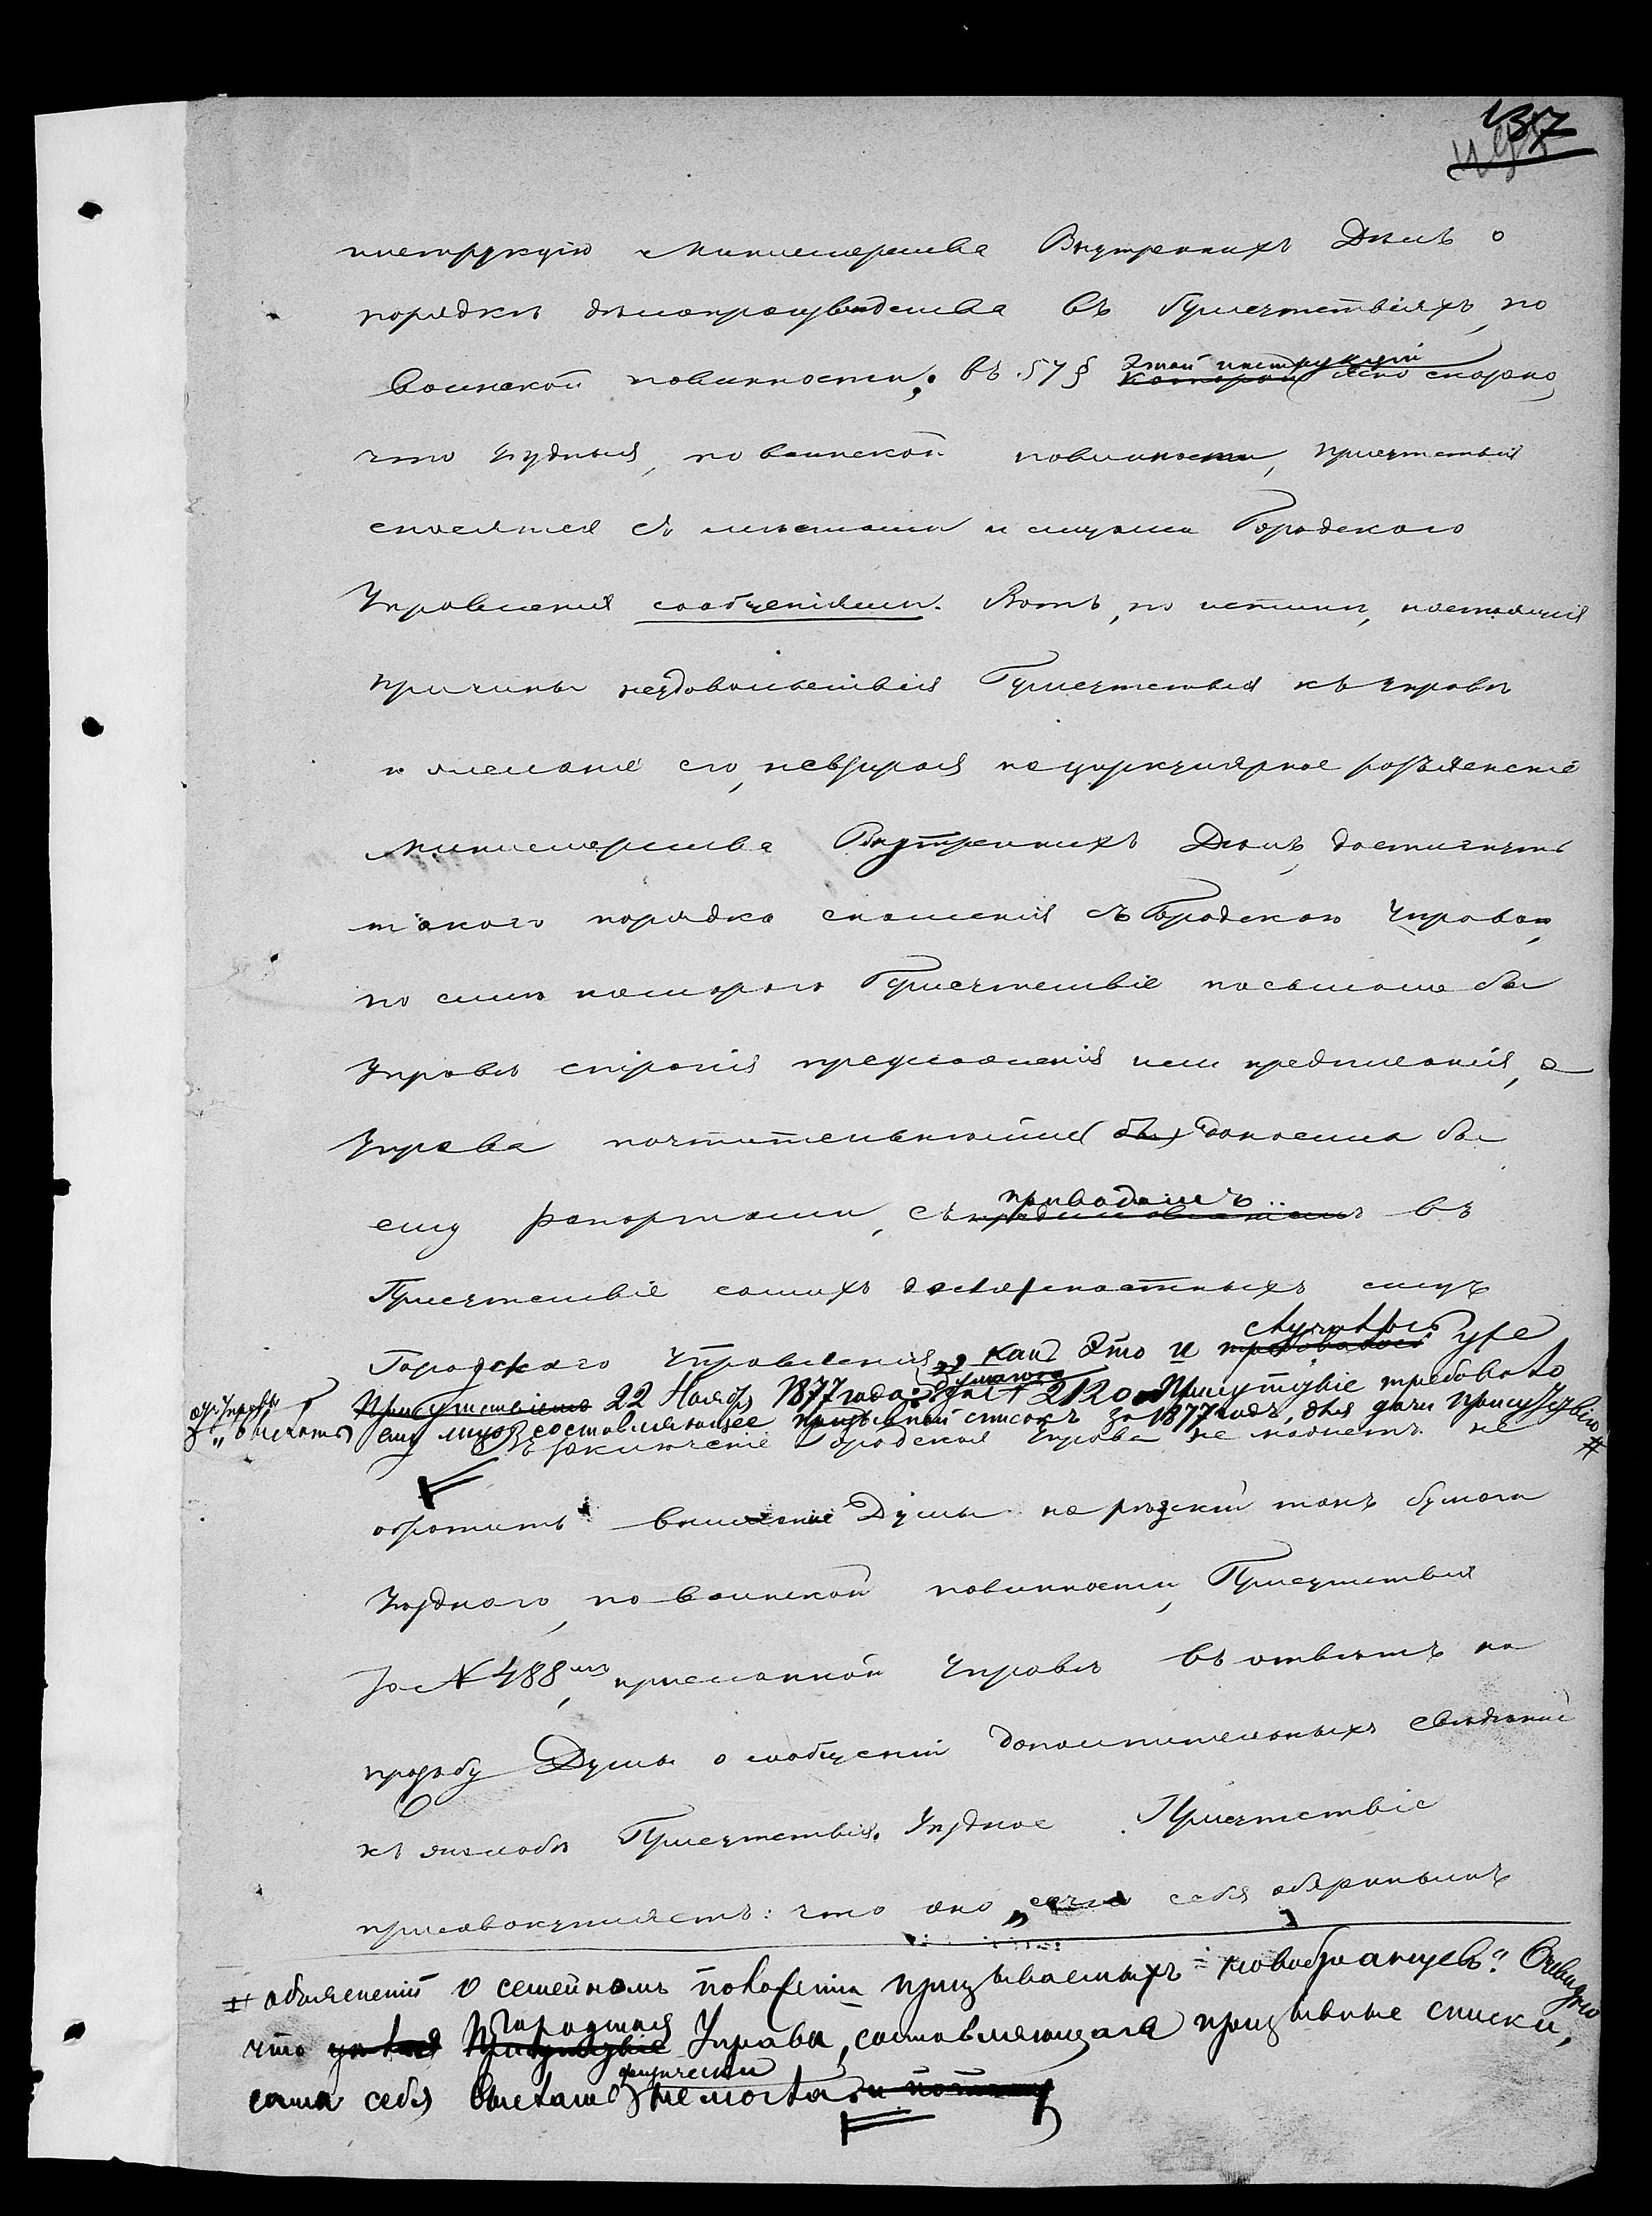 137
инструкцію Министерства Внутреннихъ Дѣлъ о
порядкѣ дѣлопроизводства въ Присутствіяхъ по
воинской повинности; въ 57 § этой инструкціи которой ясно сказано,
что Уѣздныя, по воинской повинности, Присутствія
сносятся съ мѣстами и лицами Городского
Управленія сообщеніями. Вотъ, по истинѣ, настоящія
причины неудовольствія Присутствія къ Управѣ
и желаніе его, невзирая на циркулярное разъясненіе
Министерства Внутреннихъ Дѣлъ, достигнуть
такого порядка сношенія съ Городскою Управою,
по силѣ котораго Присутствіе посылало бы
Управѣ строгія предложенія или предписанія, а
Управа почтительнѣйше (бы) доносила бы
ему рапортами, съ приводомъ въ
Присутствіе самихъ должностныхъ лицъ
Городского Управленія, какъ это и случилось требовалось уже
Присутствіемъ 22 Ноября 1877 года: бумагою № 212 Присутствіе требовало
отъ Управы „выслать ему лицо, составляющее призывной списокъ за 1877 годъ, для дачи Присутствію #
Въ заключеніе Городская Управа не можетъ не
обратить вниманіе Думы на рѣзкій тонъ бумаги
Уѣзднаго, по воинской повинности, Присутствія
за № 488мъ, присланной Управѣ въ отвѣтъ на
просьбу Думы о сообщеніи дополнительныхъ свѣдѣній
къ жалобѣ Присутствія. Уѣздное Присутствіе
присовокупляетъ: что оно „сочла себя обязаннымъ
# объясненій о семейномъ положеніи призываемыхъ новобранцевъ". Очевидно
что Городская Присутствіе Управа, составляющая призывные списки,
сама себя выслать физически не могла и потому